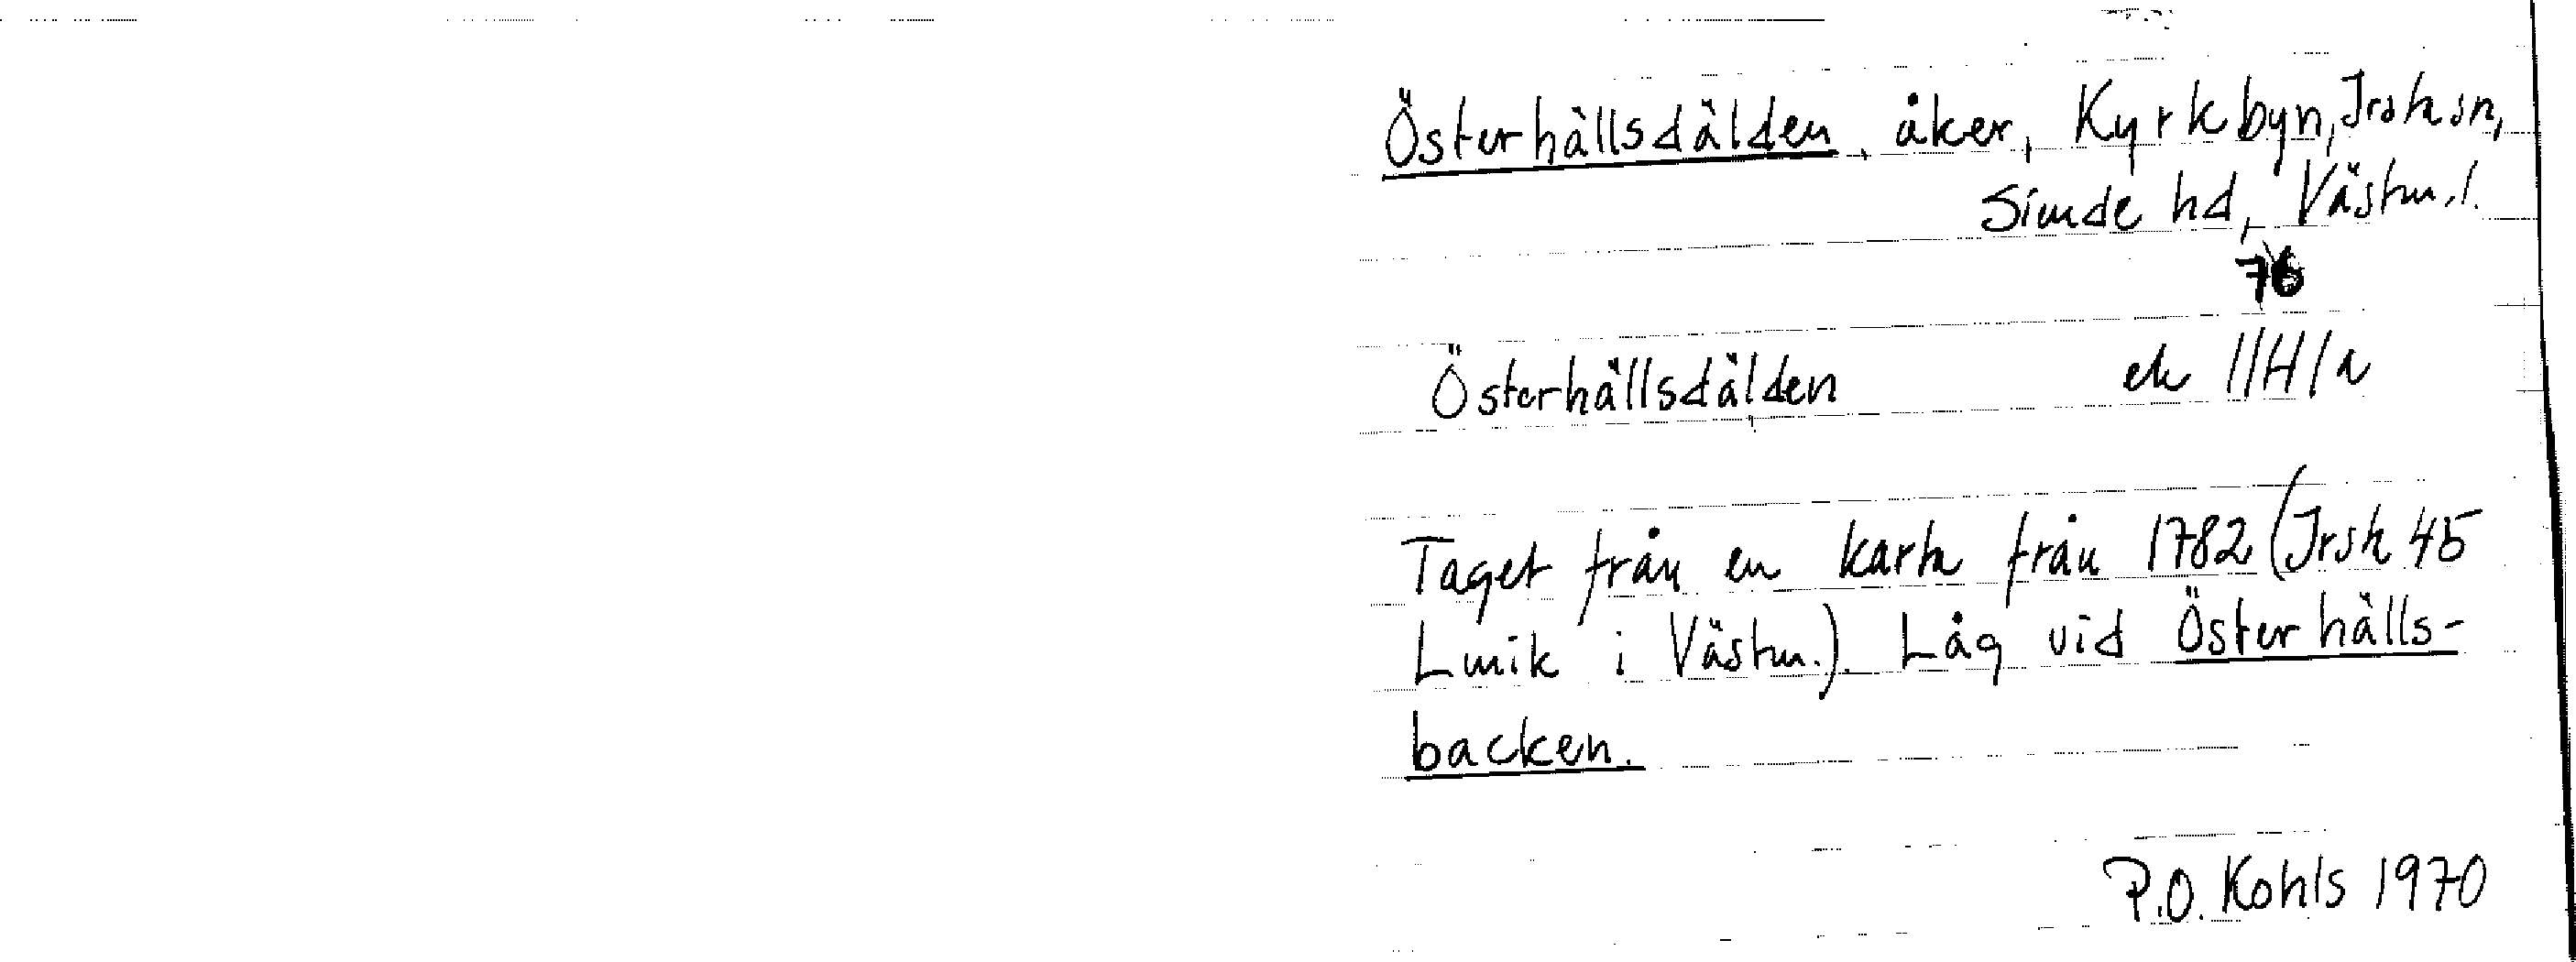 Österhällsdälden, åker, Kyrkbyn, Irsta sn,
Siende hd, Västm. l.
76
Österhällsdälden ek
Taget från en karta från 1782 (Irsta 45
Lmik i Västm.). Låg vid Österhälls-
backen.
P.O. Kohls 1970